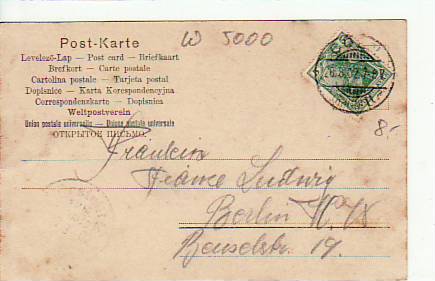 W 5000
Post-Karte
Levelező-Lap — Post card — Briefkaart
Brefkort — Carte postale
Cartolina postale — Tarjeta postal
Dopisnice — Karta Korespondencyjna
Correspondenzkarte — Dopisnica
Weltpostverein
Union postale universelle — Unione postale universale
ОТКРЫТОЕ ПИСЬМО.
8.-
Fräulein
Ludwig
Berlin N.W.
Beusselstr. 19.